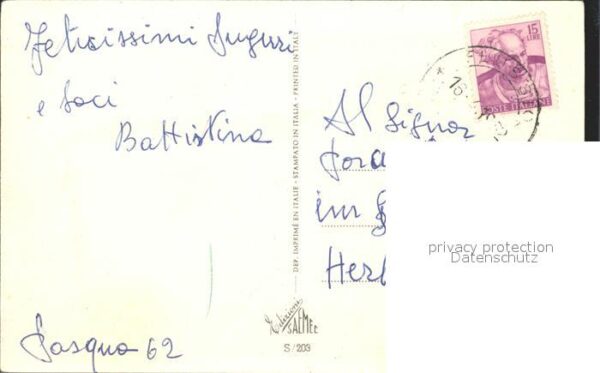 Felicissimi Auguri
e baci
Battistina
Pasqua 62
DEP. IMPRIMÉ EN ITALIE - STAMPATO IN ITALIA - PRINTED IN ITALY
Edizioni
SAEMEC
S/203
15
LIRE
POSTE ITALIANE
Al Signor
im
privacy protection
Datenschutz